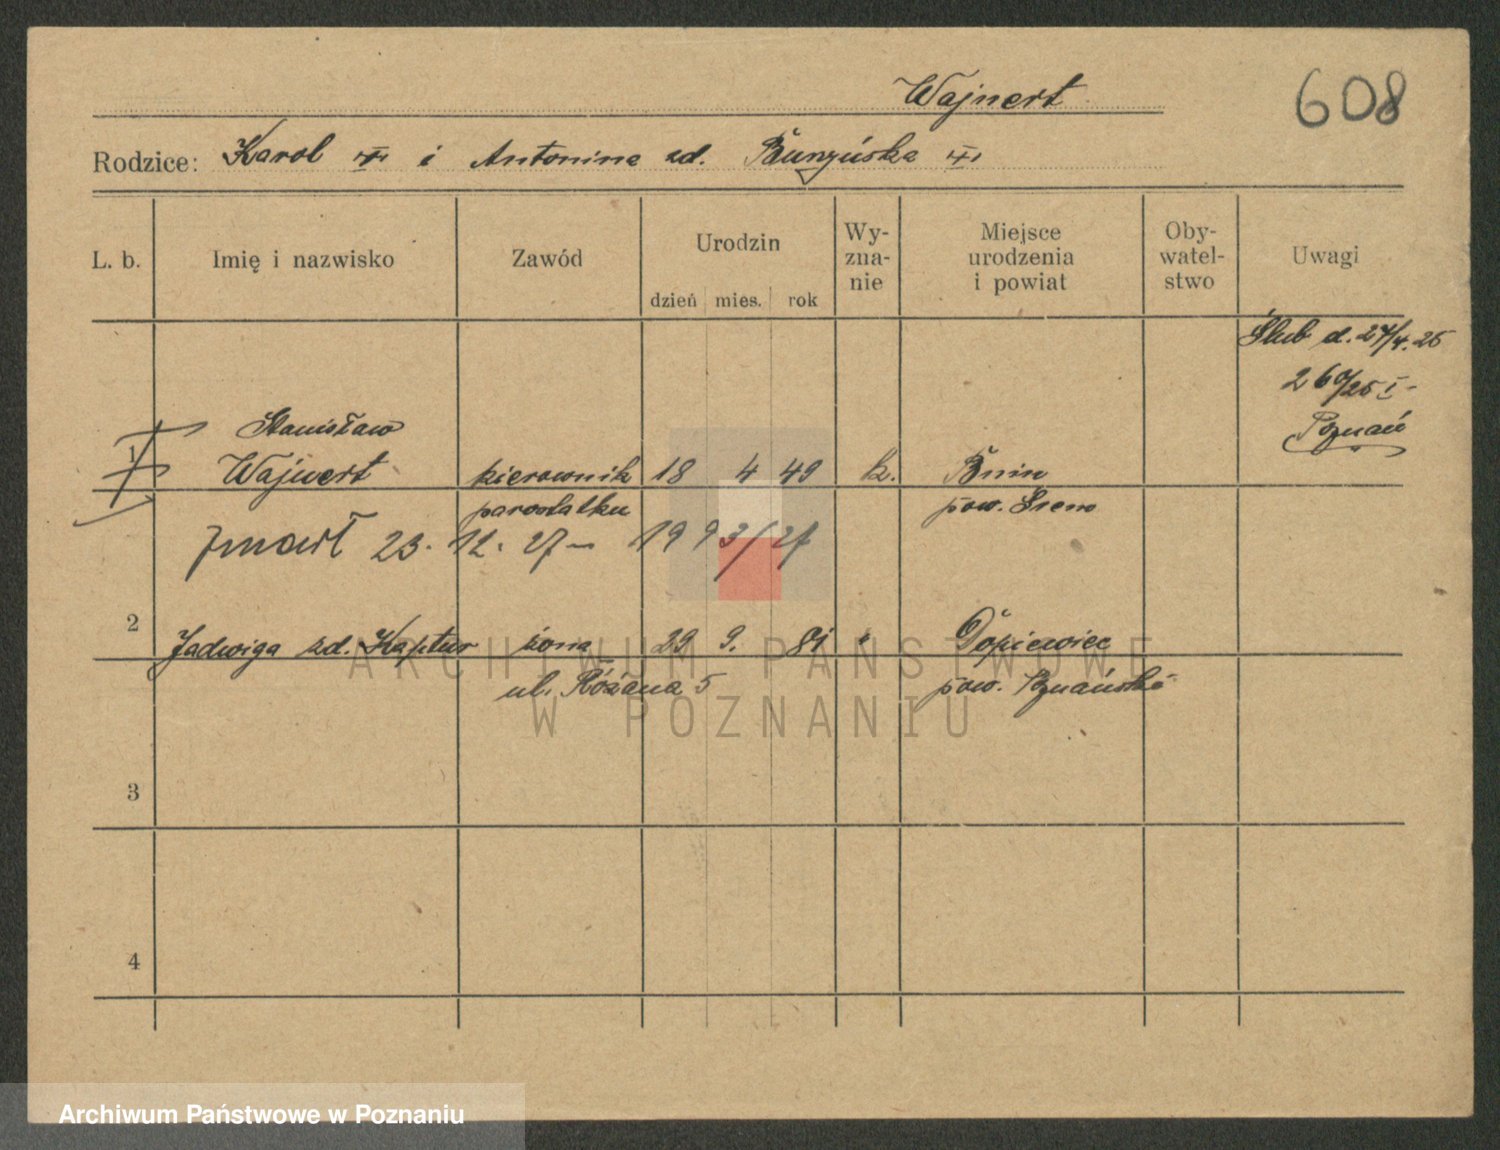 Wajnert
608
Rodzice: Karol i Antonina zd. Buszyńska
L. b.
Imię i nazwisko
Zawód
Urodzin
dzień mies. rok
Wy-
zna-
nie
Miejsce
urodzenia
i powiat
Oby-
watel-
stwo
Uwagi
Ślub d. 27/4. 25
260/25 I -
Poznań
1
Stanisław
Wajnert
kierownik
parostatku
18 4 49
k.
Bnin
pow. Śrem
zmarł 23. 12. 27 – 1993/27
2
Jadwiga zd. Kaptur
żona
29 9. 81
"
Dopiewiec
pow. Poznański
ul. Różana 5
3
4
ARCHIWUM PAŃSTWOWE
W POZNANIU
Archiwum Państwowe w Poznaniu